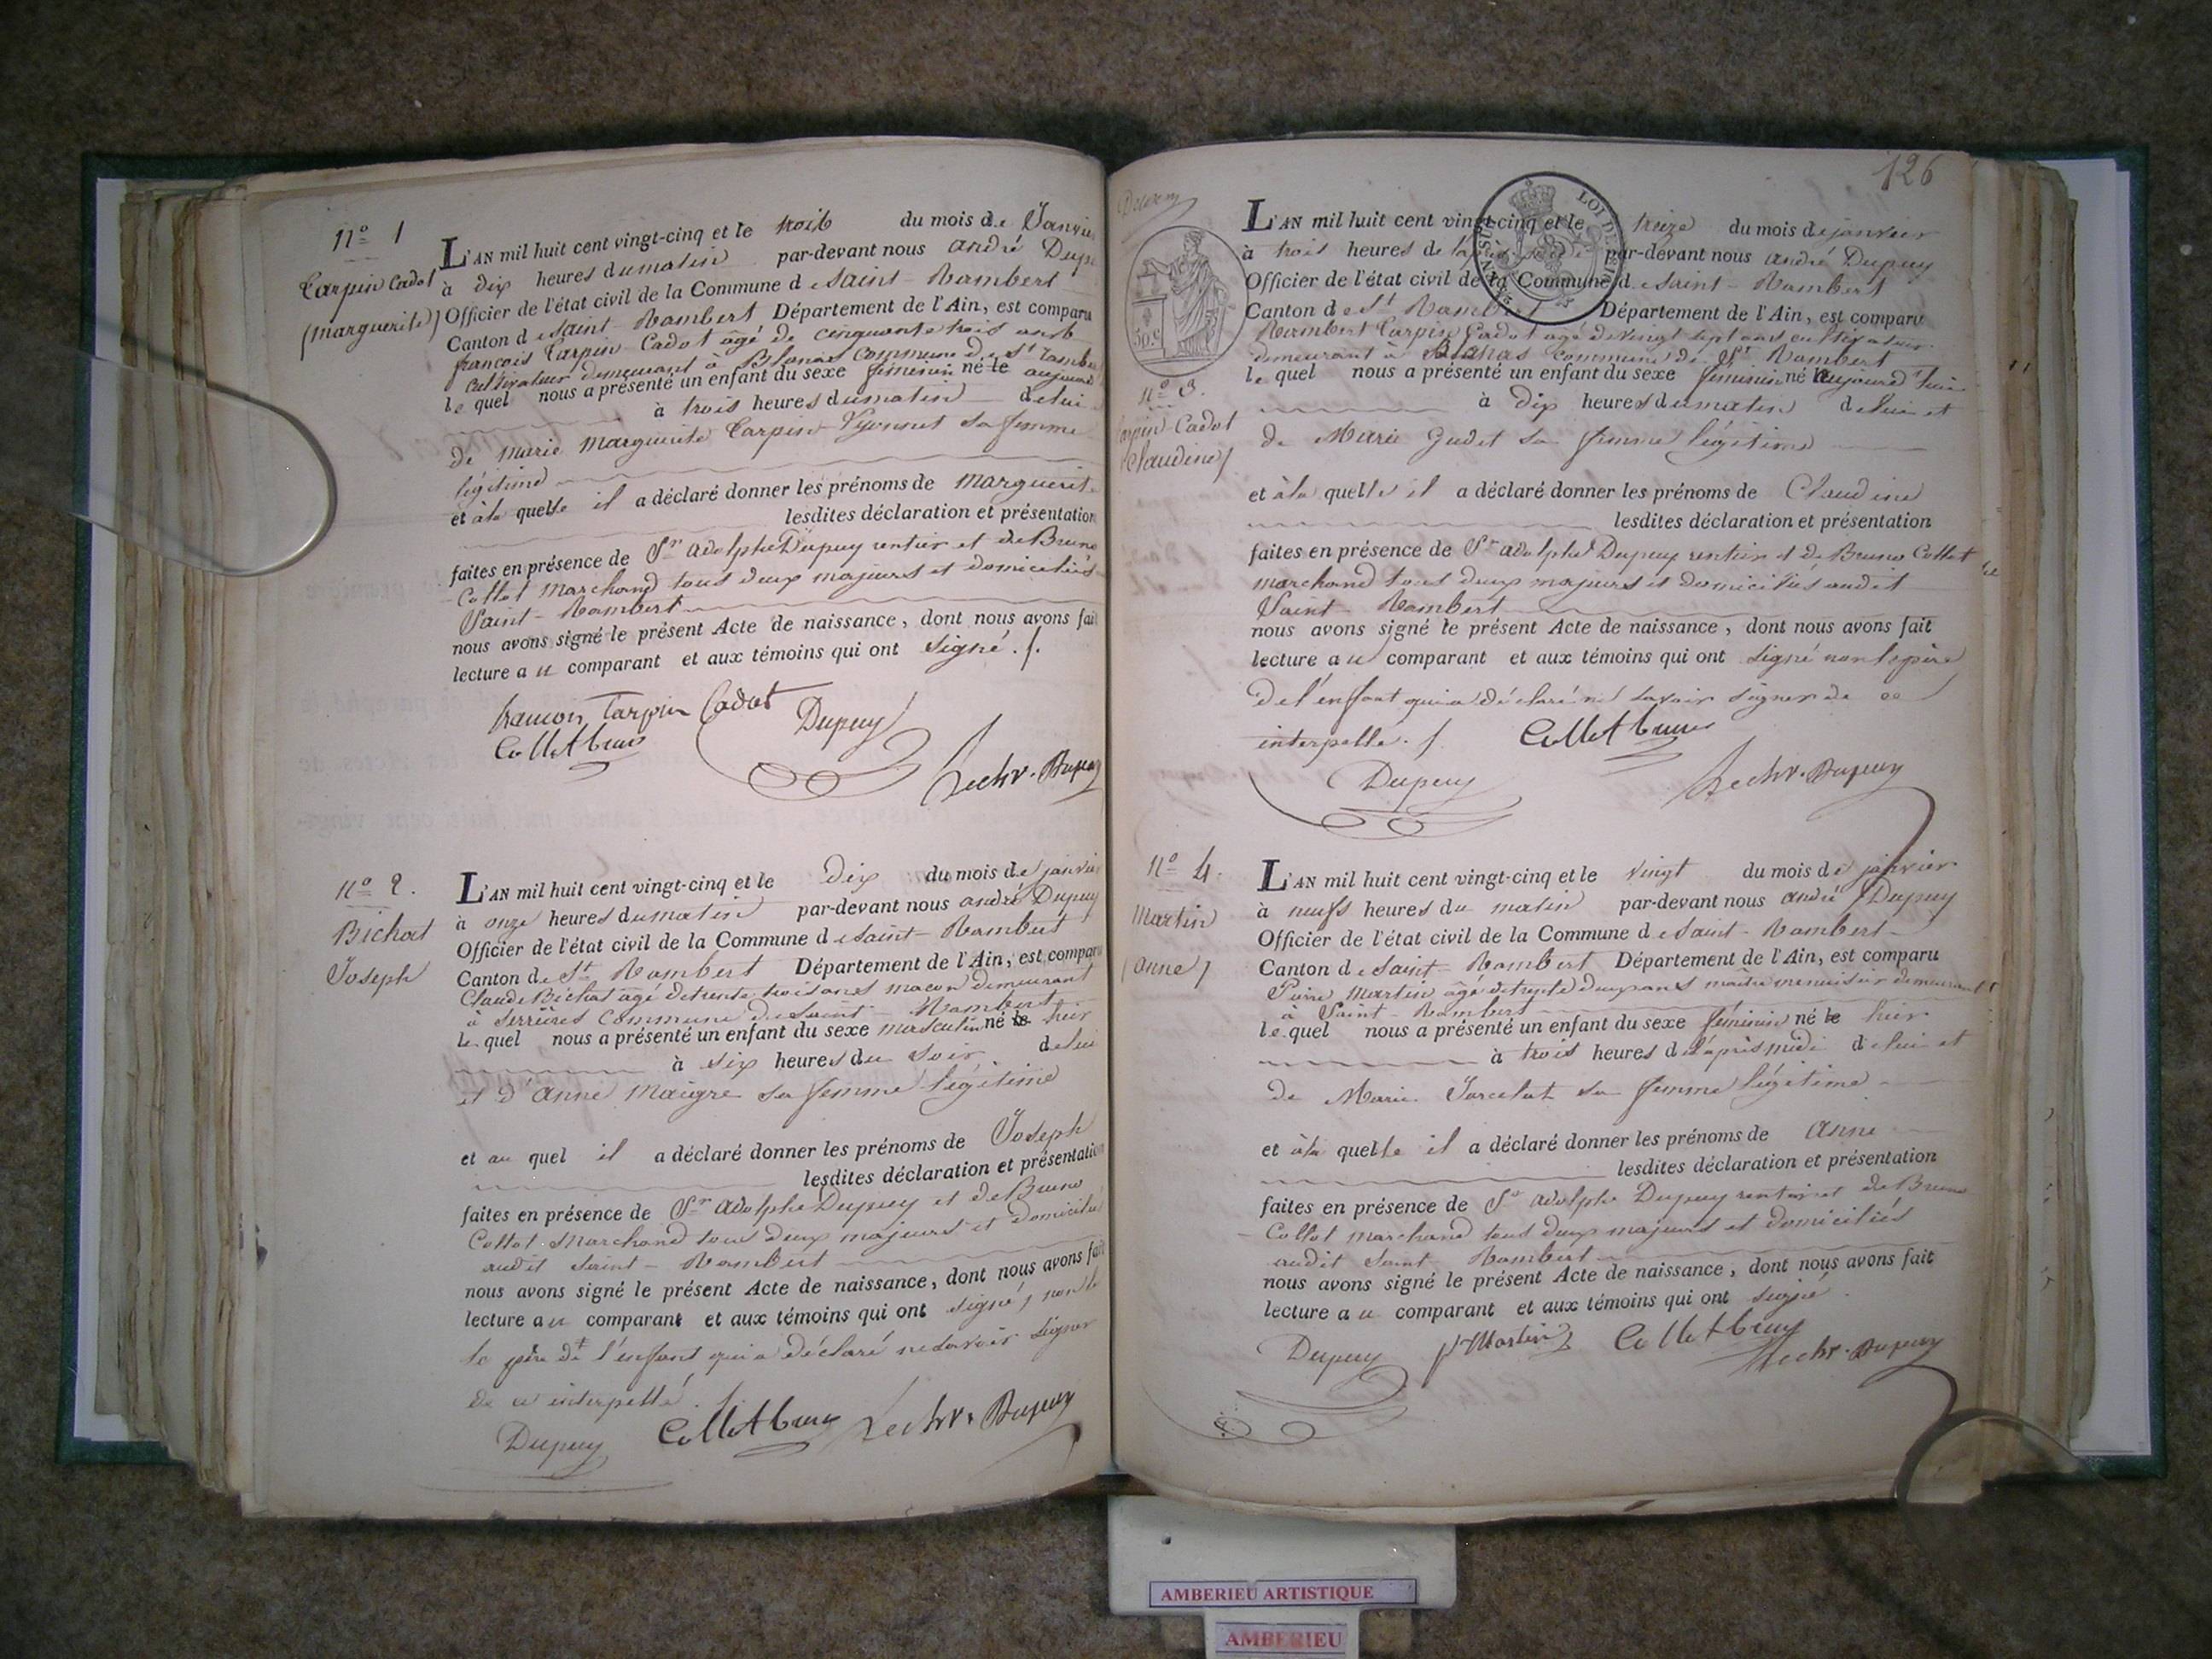 nº 1
Tarpin Cadot
(marguerite)
L'AN mil huit cent vingt-cinq et le trois du mois de Janvier
à dix heures du matin par-devant nous andré Dupuy
Officier de l'état civil de la Commune de Saint-Rambert
Canton de Saint-Rambert Département de l'Ain, est comparu
françois Tarpin Cadot âgé de cinquante trois ans
Cultivateur demeurant à Blanas commune de St Rambert
lequel nous a présenté un enfant du sexe féminin né le aujourd
à trois heures du matin de lui
de marie marguerite Tarpin sa femme
légitime
et à la quelle il a déclaré donner les prénoms de marguerite
lesdites déclaration et présentation
faites en présence de Sr adolphe Dupuy rentier et de Bruno
Collet marchand tous deux majeurs et domiciliés
Saint-Rambert
nous avons signé le présent Acte de naissance, dont nous avons fait
lecture au comparant et aux témoins qui ont signé.
francois Tarpin Cadot Dupuy
Collet bruno
Dupuy
nº 2.
Bichat
Joseph
L'AN mil huit cent vingt-cinq et le Dix du mois de janvier
à onze heures du matin par-devant nous andré Dupuy
Officier de l'état civil de la Commune de Saint-Rambert
Canton de St Rambert Département de l'Ain, est comparu
Claude Bichat âgé de trente trois ans macon demeurant
à Serrières commune de Saint-Rambert
lequel nous a présenté un enfant du sexe masculin né le hier
à six heures du soir de lui
et d'anne Maigre sa femme légitime
et au quel il a déclaré donner les prénoms de Joseph
lesdites déclaration et présentation
faites en présence de Sr adolphe Dupuy et de Bruno
Collet marchand tous deux majeurs et domiciliés
audit Saint-Rambert
nous avons signé le présent Acte de naissance, dont nous avons fait
lecture au comparant et aux témoins qui ont signé, non le
le père dt l'enfant qui a déclaré ne savoir signer
de ce interpellé.
Dupuy Collet bruno Dupuy
126
LOI DE
50.c
nº 3.
Tarpin Cadot
(Claudine)
L'AN mil huit cent vingt-cinq et le treize du mois de janvier
à trois heures de par-devant nous andré Dupuy
Officier de l'état civil de la Commune de Saint-Rambert
Canton de St Rambert Département de l'Ain, est comparu
Rambert Tarpin Cadot âgé de vingt sept ans cultivateur
demeurant à Blanas commune de St Rambert
lequel nous a présenté un enfant du sexe féminin né aujourd'hui
à dix heures du matin de lui et
de Marie Judet sa femme légitime
et à la quelle il a déclaré donner les prénoms de Claudine
lesdites déclaration et présentation
faites en présence de Sr adolphe Dupuy rentier et de Bruno Collet
marchand tous deux majeurs et domiciliés audit
Saint-Rambert
nous avons signé le présent Acte de naissance, dont nous avons fait
lecture au comparant et aux témoins qui ont signé non le père
de l'enfant qui a déclaré ne savoir signer de ce
interpelle. Collet bruno
Dupuy Dupuy
nº 4.
Martin
(anne)
L'AN mil huit cent vingt-cinq et le vingt du mois de janvier
à neufs heures du matin par-devant nous andré Dupuy
Officier de l'état civil de la Commune de Saint-Rambert
Canton de Saint-Rambert Département de l'Ain, est comparu
Pierre Martin âgé de trente deux ans maître menuisier demeurant
à Saint-Rambert
lequel nous a présenté un enfant du sexe féminin né le hier
à trois heures de l'après midi de lui et
de Marie sa femme légitime
et à la quelle il a déclaré donner les prénoms de anne
lesdites déclaration et présentation
faites en présence de Sr adolphe Dupuy rentier et de Bruno
Collet marchand tous deux majeurs et domiciliés
audit Saint-Rambert
nous avons signé le présent Acte de naissance, dont nous avons fait
lecture au comparant et aux témoins qui ont signé.
Dupuy Martin Collet bruno
Dupuy
AMBERIEU ARTISTIQUE
AMBERIEU